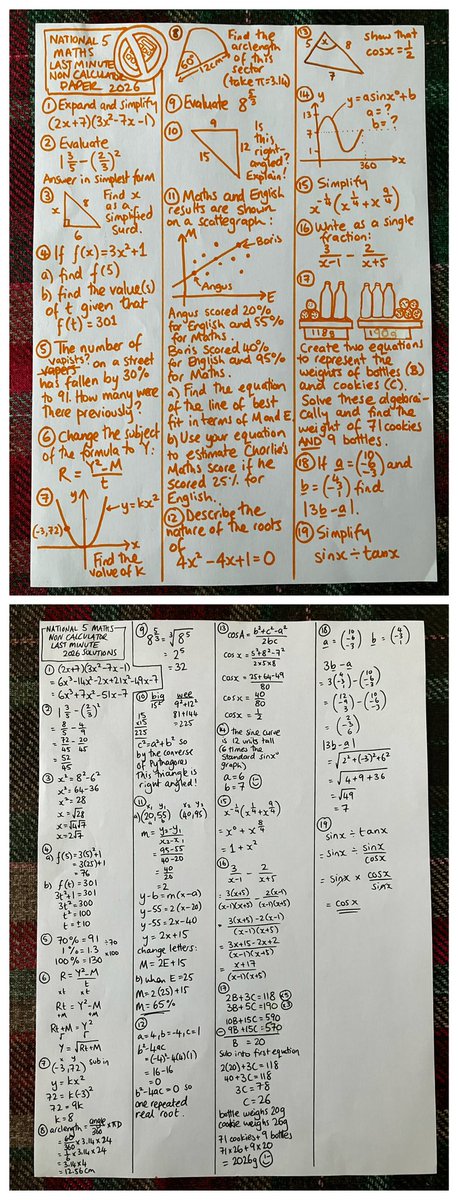 NATIONAL 5
MATHS
LAST MINUTE
NON CALCULATOR
PAPER 2026
① Expand and simplify
(2x+7)(3x²-7x-1)
② Evaluate
1 3/5 - (2/3)²
Answer in simplest form
③ Find x
as a
simplified
surd.
x 8
6
④ If f(x)=3x²+1
a) find f(5)
b) find the value(s)
of t given that
f(t)=301
⑤ The number of
vapists?
vapers on a street
has fallen by 30%
to 91. How many were
there previously?
⑥ Change the subject
of the formula to Y:
R = Y²-M/t
⑦ y
y=kx²
(-3,72)
x
Find the
value of k
⑧ Find the
arclength
of this
sector
(take π=3.14)
60°
12cm
⑨ Evaluate 8^(5/3)
⑩ 9
12
15
Is
this
right-
angled?
Explain!
⑪ Maths and English
results are shown
on a scattergraph:
M
Boris
Angus
E
Angus scored 20%
for English and 55%
for Maths.
Boris scored 40%
for English and 95%
for Maths.
a) Find the equation
of the line of best
fit in terms of M and E.
b) Use your equation
to estimate Charlie's
Maths score if he
scored 25% for
English.
⑫ Describe the
nature of the roots
of
4x²-4x+1=0
⑬ show that
cosx=1/2
5 x 8
7
⑭ y
y=asinx°+b
a=?
b=?
13
7
1
360
x
⑮ Simplify
x^(-1/4)(x^(1/4)+x^(9/4))
⑯ Write as a single
fraction:
3/x-1 - 2/x+5
⑰
118g 190g
Create two equations
to represent the
weights of bottles (B)
and cookies (C).
Solve these algebrai-
cally and find the
weight of 71 cookies
AND 9 bottles.
⑱ If a=(10 -6 -3) and
b=(4 -3 1) find
|3b-a|.
⑲ Simplify
sinx÷tanx
NATIONAL 5 MATHS
NON CALCULATOR
LAST MINUTE
2026 SOLUTIONS
① (2x+7)(3x²-7x-1)
=6x³-14x²-2x+21x²-49x-7
=6x³+7x²-51x-7
② 1 3/5 - (2/3)²
= 8/5 - 4/9
= 72/45 - 20/45
= 52/45
③ x²=8²-6²
x²=64-36
x²=28
x=√28
x=√4√7
x=2√7
④
a) f(5)=3(5)²+1
=3(25)+1
=76
b) f(t)=301
3t²+1=301
3t²=300
t²=100
t=±10
⑤ 70%=91
÷70
1%=1.3
×100
100%=130
⑥ R=Y²-M/t
×t ×t
Rt=Y²-M
+M +M
Rt+M=Y²
√ √
Y=√Rt+M
⑦ x y
(-3,72) sub in
y=kx²
72=k(-3)²
72=9k
k=8
⑧ arclength=angle/360×πD
=60/360×3.14×24
=1/6×3.14×24
=3.14×4
=12.56cm
⑨ 8^(5/3)=³√8⁵
=2⁵
=32
⑩ big wee
15² 9²+12²
15 81+144
×15 =225
225
c²=a²+b² so
by the converse
of Pythagoras
this triangle is
right angled!
⑪ x₁ y₁ x₂ y₂
a) (20,55) (40,95)
m=y₂-y₁/x₂-x₁
=95-55/40-20
=40/20
=2
y-b=m(x-a)
y-55=2(x-20)
y-55=2x-40
y=2x+15
change letters:
M=2E+15
b) when E=25
M=2(25)+15
M=65%
⑫
a=4, b=-4, c=1
b²-4ac
=(-4)²-4(4)(1)
=16-16
=0
b²-4ac=0 so
one repeated
real root.
⑬ cosA=b²+c²-a²/2bc
cosx=5²+8²-7²/2×5×8
cosx=25+64-49/80
cosx=40/80
cosx=1/2
⑭ the sine curve
is 12 units tall
(6 times the
standard sinx°
graph)
a=6
b=7
⑮
x^(-1/4)(x^(1/4)+x^(9/4))
=x⁰+x^(8/4)
=1+x²
⑯ 3/x-1 - 2/x+5
=3(x+5)/(x-1)(x+5) - 2(x-1)/(x-1)(x+5)
=3(x+5)-2(x-1)/(x-1)(x+5)
=3x+15-2x+2/(x-1)(x+5)
=x+17/(x-1)(x+5)
⑰
2B+3C=118 ×5
3B+5C=190 ×3
10B+15C=590
- 9B+15C=570
B = 20
Sub into first equation
2(20)+3C=118
40+3C=118
3C=78
C=26
bottle weighs 20g
cookie weighs 26g
71 cookies+9 bottles
=71×26+9×20
=2026g
⑱
a=(10 -6 -3) b=(4 -3 1)
3b-a
=3(4 -3 1)-(10 -6 -3)
=(12 -9 3)-(10 -6 -3)
=(2 -3 6)
|3b-a|
=√2²+(-3)²+6²
=√4+9+36
=√49
=7
⑲
sinx÷tanx
=sinx÷sinx/cosx
=sinx×cosx/sinx
=cosx